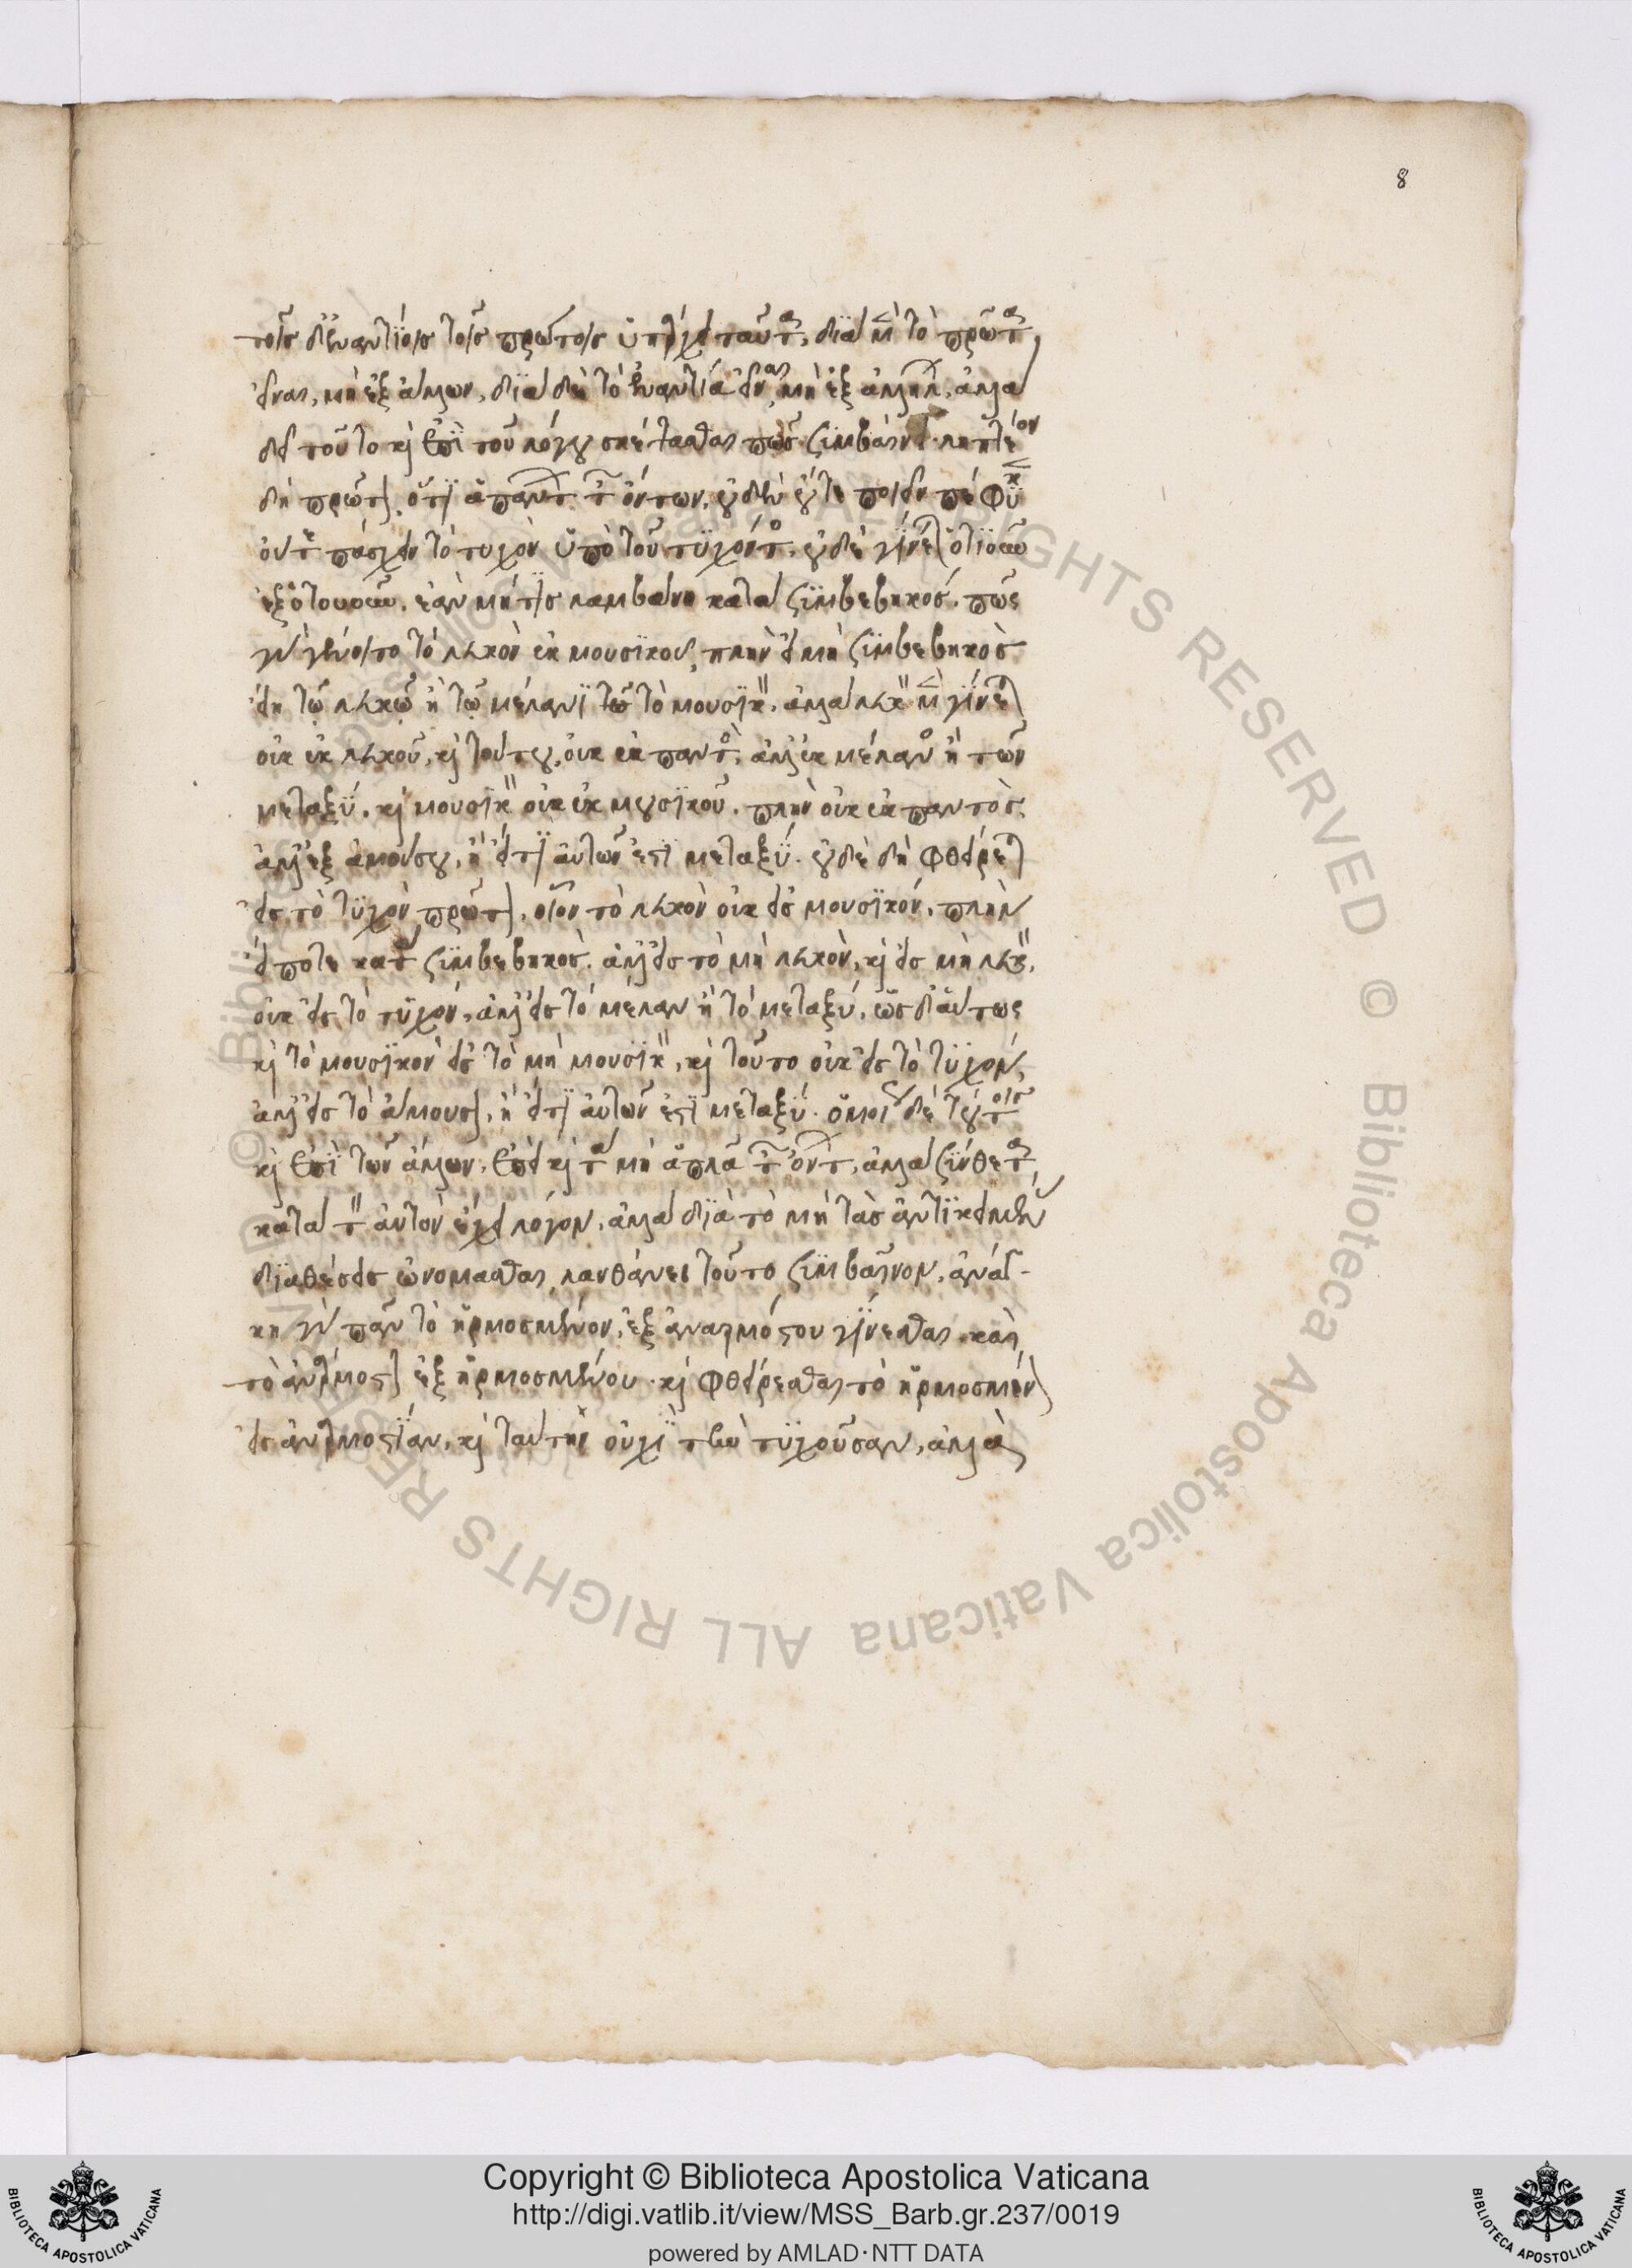 8
τοῖς δ' ἐναντίοις τοῖς πρώτοις ὑπάρχει ταῦτα, διὰ μὲν τὸ πρῶτα
εἶναι, μὴ ἐξ ἄλλων, διὰ δὲ τὸ ἐναντία εἶναι μὴ ἐξ ἀλλήλων, ἀλλὰ
δεῖ τοῦτο καὶ ἐπὶ τοῦ λόγου σκέψασθαι πῶς συμβαίνει. ληπτέον
δὴ πρῶτον, ὅτι ἁπάντων τῶν ὄντων, οὐδὲν οὔτε ποιεῖν πέφυκεν
οὔτε πάσχειν τὸ τυχὸν ὑπὸ τοῦ τυχόντος, οὐδὲ γίνεται ὁτιοῦν
ἐξ ὁτουοῦν, ἐὰν μή τις λαμβάνῃ κατὰ συμβεβηκός. πῶς
γὰρ γένοιτο τὸ λευκὸν ἐκ μουσικοῦ, πλὴν εἰ μὴ συμβεβηκὸς
εἴη τῷ λευκῷ ἢ τῷ μέλανι τῶ τὸ μουσικὸν, ἀλλὰ λευκὸν μὲν γίνεται
οὐκ ἐκ λευκοῦ, καὶ τούτου, οὐκ ἐκ παντὸς, ἀλλ' ἐκ μέλανος ἢ τῶν
μεταξύ. καὶ μουσικὸν οὐκ ἐκ μουσικοῦ. πλὴν οὐκ ἐκ παντὸς,
ἀλλ' ἐξ ἀμούσου, ἢ εἴ τι αὐτῶν ἐστι μεταξύ. οὐδὲ δὴ φθείρεται
εἰς τὸ τυχὸν πρῶτον, οἷον τὸ λευκὸν οὐκ εἰς μουσικόν, πλὴν
εἴ ποτε κατὰ συμβεβηκός. ἀλλ' εἰς τὸ μὴ λευκὸν, καὶ εἰς μὴ λευκὸν,
οὐκ εἰς τὸ τυχόν, ἀλλ' εἰς τὸ μέλαν ἢ τὸ μεταξύ, ὡς δ' αὔτως
καὶ τὸ μουσικὸν εἰς τὸ μὴ μουσικὸν, καὶ τοῦτο οὐκ εἰς τὸ τυχὸν,
ἀλλ' εἰς τὸ ἄμουσον, ἢ εἴ τι αὐτῶν ἐστι μεταξύ. ὁμοίως δὲ τούτοις
καὶ ἐπὶ τῶν ἄλλων, ἐπεὶ καὶ τὰ μὴ ἁπλᾶ τῶν ὄντων, ἀλλὰ σύνθετα,
κατὰ τὸν αὐτὸν ἔχει λόγον, ἀλλὰ διὰ τὸ μὴ τὰς ἀντικειμένας
διαθέσεις ὠνομᾶσθαι, λανθάνει τοῦτο συμβαῖνον, ἀνάγ-
κη γὰρ πᾶν τὸ ἡρμοσμένον, ἐξ ἀναρμόστου γίνεσθαι. καὶ
τὸ ἀνάρμοστον ἐξ ἡρμοσμένου. καὶ φθείρεσθαι τὸ ἡρμοσμένον
εἰς ἀναρμοστίαν, καὶ ταύτην οὐχὶ τὴν τυχοῦσαν, ἀλλὰ
© Biblioteca Apostolica Vaticana ALL RIGHTS RESERVED © Biblioteca Apostolica Vaticana ALL RIGHTS RESERVED
Copyright © Biblioteca Apostolica Vaticana
http://digi.vatlib.it/view/MSS_Barb.gr.237/0019
powered by AMLAD·NTT DATA
BIBLIOTECA APOSTOLICA VATICANA
BIBLIOTECA APOSTOLICA VATICANA